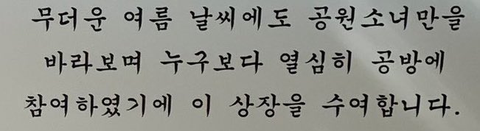 무더운 여름 날씨에도 공원소녀만을
바라보며 누구보다 열심히 공방에
참여하였기에 이 상장을 수여합니다.